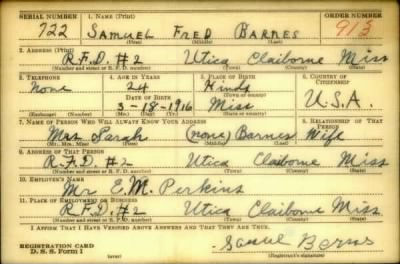 SERIAL NUMBER 1. NAME (Print) ORDER NUMBER
722 SAMUEL FRED BARNES 913
(First) (Middle) (Last)
2. ADDRESS (Print)
R.F.D. #2 Utica Claiborne Miss
(Number and street or R. F. D. number) (Town) (County) (State)
3. TELEPHONE 4. AGE IN YEARS 5. PLACE OF BIRTH 6. COUNTRY OF CITIZENSHIP
None 24 Hinds
DATE OF BIRTH (Town or county)
3-18-1916 Miss U.S.A.
(Exchange) (Number) (Mo.) (Day) (Yr.) (State or country)
7. NAME OF PERSON WHO WILL ALWAYS KNOW YOUR ADDRESS 8. RELATIONSHIP OF THAT PERSON
Mrs Sarah (none) Barnes Wife
(Mr., Mrs., Miss) (First) (Middle) (Last)
9. ADDRESS OF THAT PERSON
R.F.D. #2 Utica Claiborne Miss
(Number and street or R. F. D. number) (Town) (County) (State)
10. EMPLOYER'S NAME
Mr E.M. Perkins
11. PLACE OF EMPLOYMENT OR BUSINESS
R.F.D. #2 Utica Claiborne Miss
(Number and street or R. F. D. number) (Town) (County) (State)
I AFFIRM THAT I HAVE VERIFIED ABOVE ANSWERS AND THAT THEY ARE TRUE.
REGISTRATION CARD
D. S. S. Form 1
(over) (Registrant's signature)